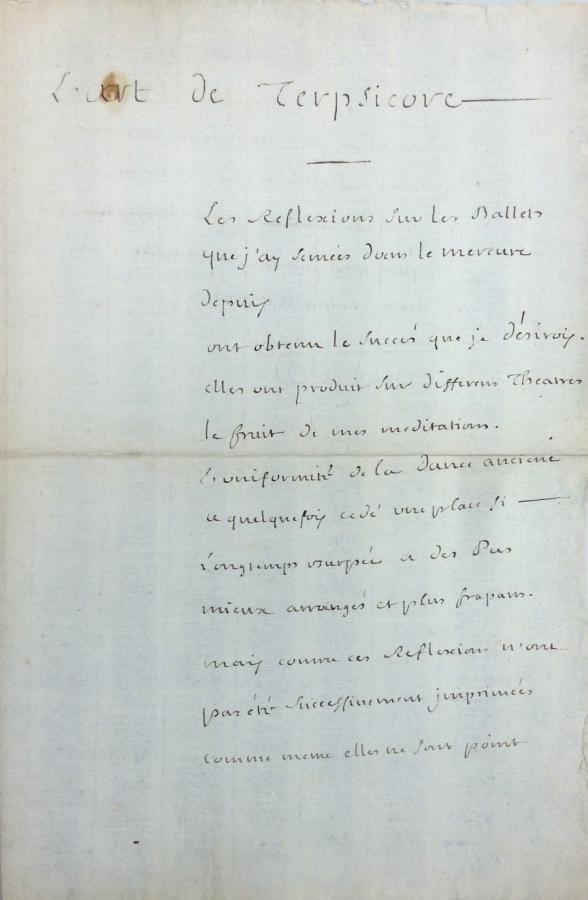 L'art de Terpsicore
Les Reflexions sur les Ballets
que j'ay semées dans le mercure
depuis
ont obtenu le succés que je désirois.
elles ont produit sur differens Theatres
le fruit de mes meditations.
L'uniformité de la dance anciene
a quelquefois cedé une place si
longtemps usurpée a des Pas
mieux arrangés et plus frapans.
mais comme ces Reflexions n'ont
pas été successivement jmprimées
comme meme elles ne sont point